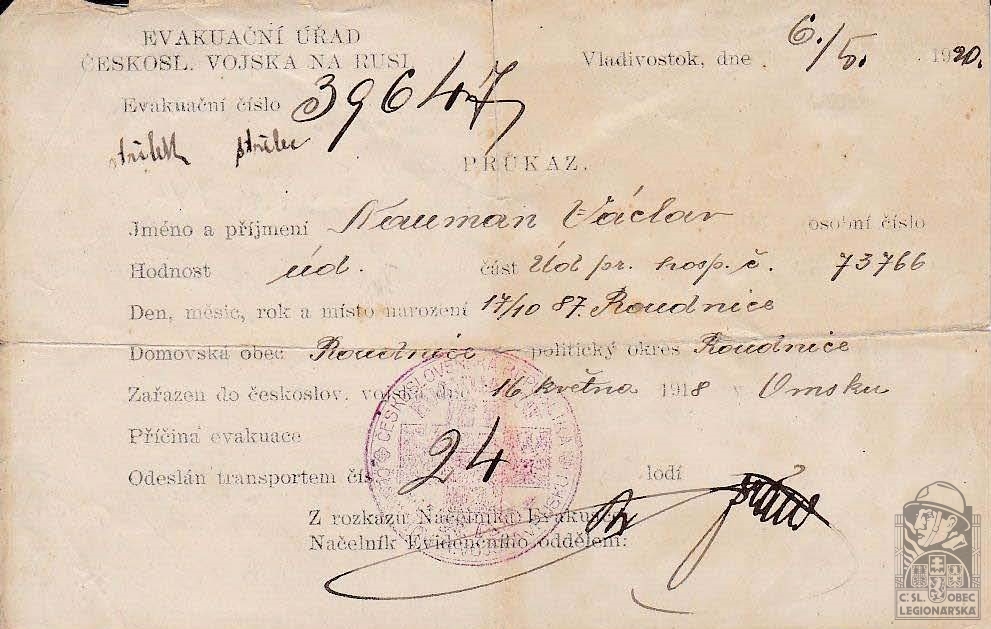 EVAKUAČNÍ ÚŘAD
ČESKOSL. VOJSKA NA RUSI
Vladivostok, dne 6./5. 1920.
Evakuační číslo 39647
střelec
PRŮKAZ.
Jméno a příjmení Nauman Václav osobní číslo
Hodnost úd. část Úd pr. hosp. č. 73766
Den, měsíc, rok a místo narození 17/10 87. Roudnice
Domovská obec Roudnice politický okres Roudnice
Zařazen do českoslov. vojska dne 16 května 1918 v Omsku
Příčina evakuace
Odeslán transportem čís. 24 lodí
Z rozkazu Náčelníka Evakuace
Náčelník Evidenčního oddělení:
Č.SL. OBEC
LEGIONÁŘSKÁ